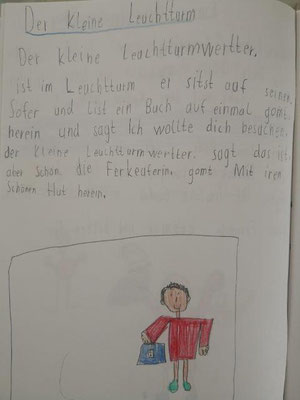 Der kleine Leuchtturm
Der kleine Leuchtturmwertter.
Ist im Leuchtturm er sitst auf seinen
Sofer und List ein Buch auf einmal gomt
herein und sagt Ich wollte dich besuchen.
der kleine Leuchtturmwertter. sagt das ist
aber schön. die Ferkeuferin. gomt Mit iren
Schönen Hut herein.